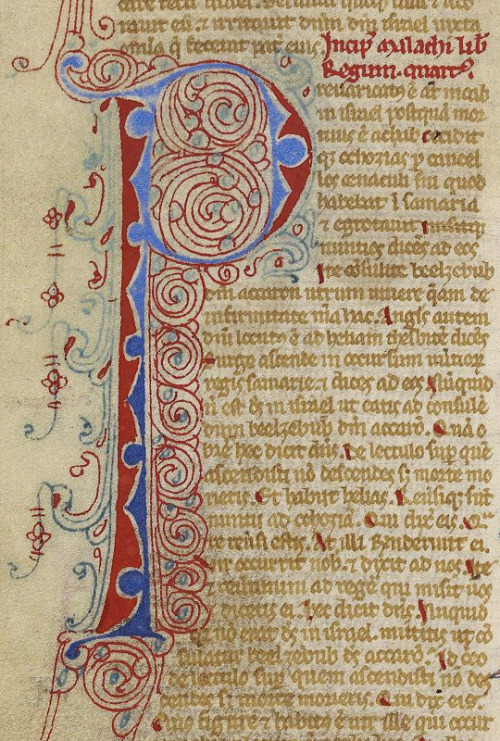 rauit eū. & irritauit dnm dm israel iuxta
omīa q̄ fecerat pat eius.
Incip̄ malachi lib̄
Regum quartꝰ.
Preuaricatꝰ ē aūt moab
in israel postquā mor
tuus ē achab. cecidit
qȝ ochozias p cancel
los cenaculi sui quod
habebat ī samaria
& egrotauit. misitqȝ
nuntios dicēs ad eos
Ite cōsulite beelzebub
dm accaron utrum uiuere q̄am de
infirmitate mīa hac. Angls autem
dn̄i locutꝰ ē ad heliam thesbitē dicēs
Surge ascende in occursum nūtior
regis samarie. & dices ad eos. Nūquid
n̄ est ds in israel ut eatis ad consulē
dum beelzebub dm accarō. Quā o
brē hec dicit dn̄s. De lectulo sup que
ascendisti nō descendes s; morte mo
rieris. Et habiit helias. Reusiqȝ sūt
nuntii ad ochoziā. Qui dix̄ eis. Qr
re reusi estis. At illi Rnderunt ei.
Vir occurrit nob. & dixit ad nos. Ite
reutimini ad regē qui misit uos
& dicetis ei. hec dicit dn̄s. Nunquid
qȝ nō erat ds in israel. mittitis ut cō
sulatur beelzebub ds accarō. Id cco
de lectulo sup quem ascendisti nō des
cendes s; morte morieris. Qui dix eis.
Cuiꝰ figure & habitꝰ ē uir ille qui occur